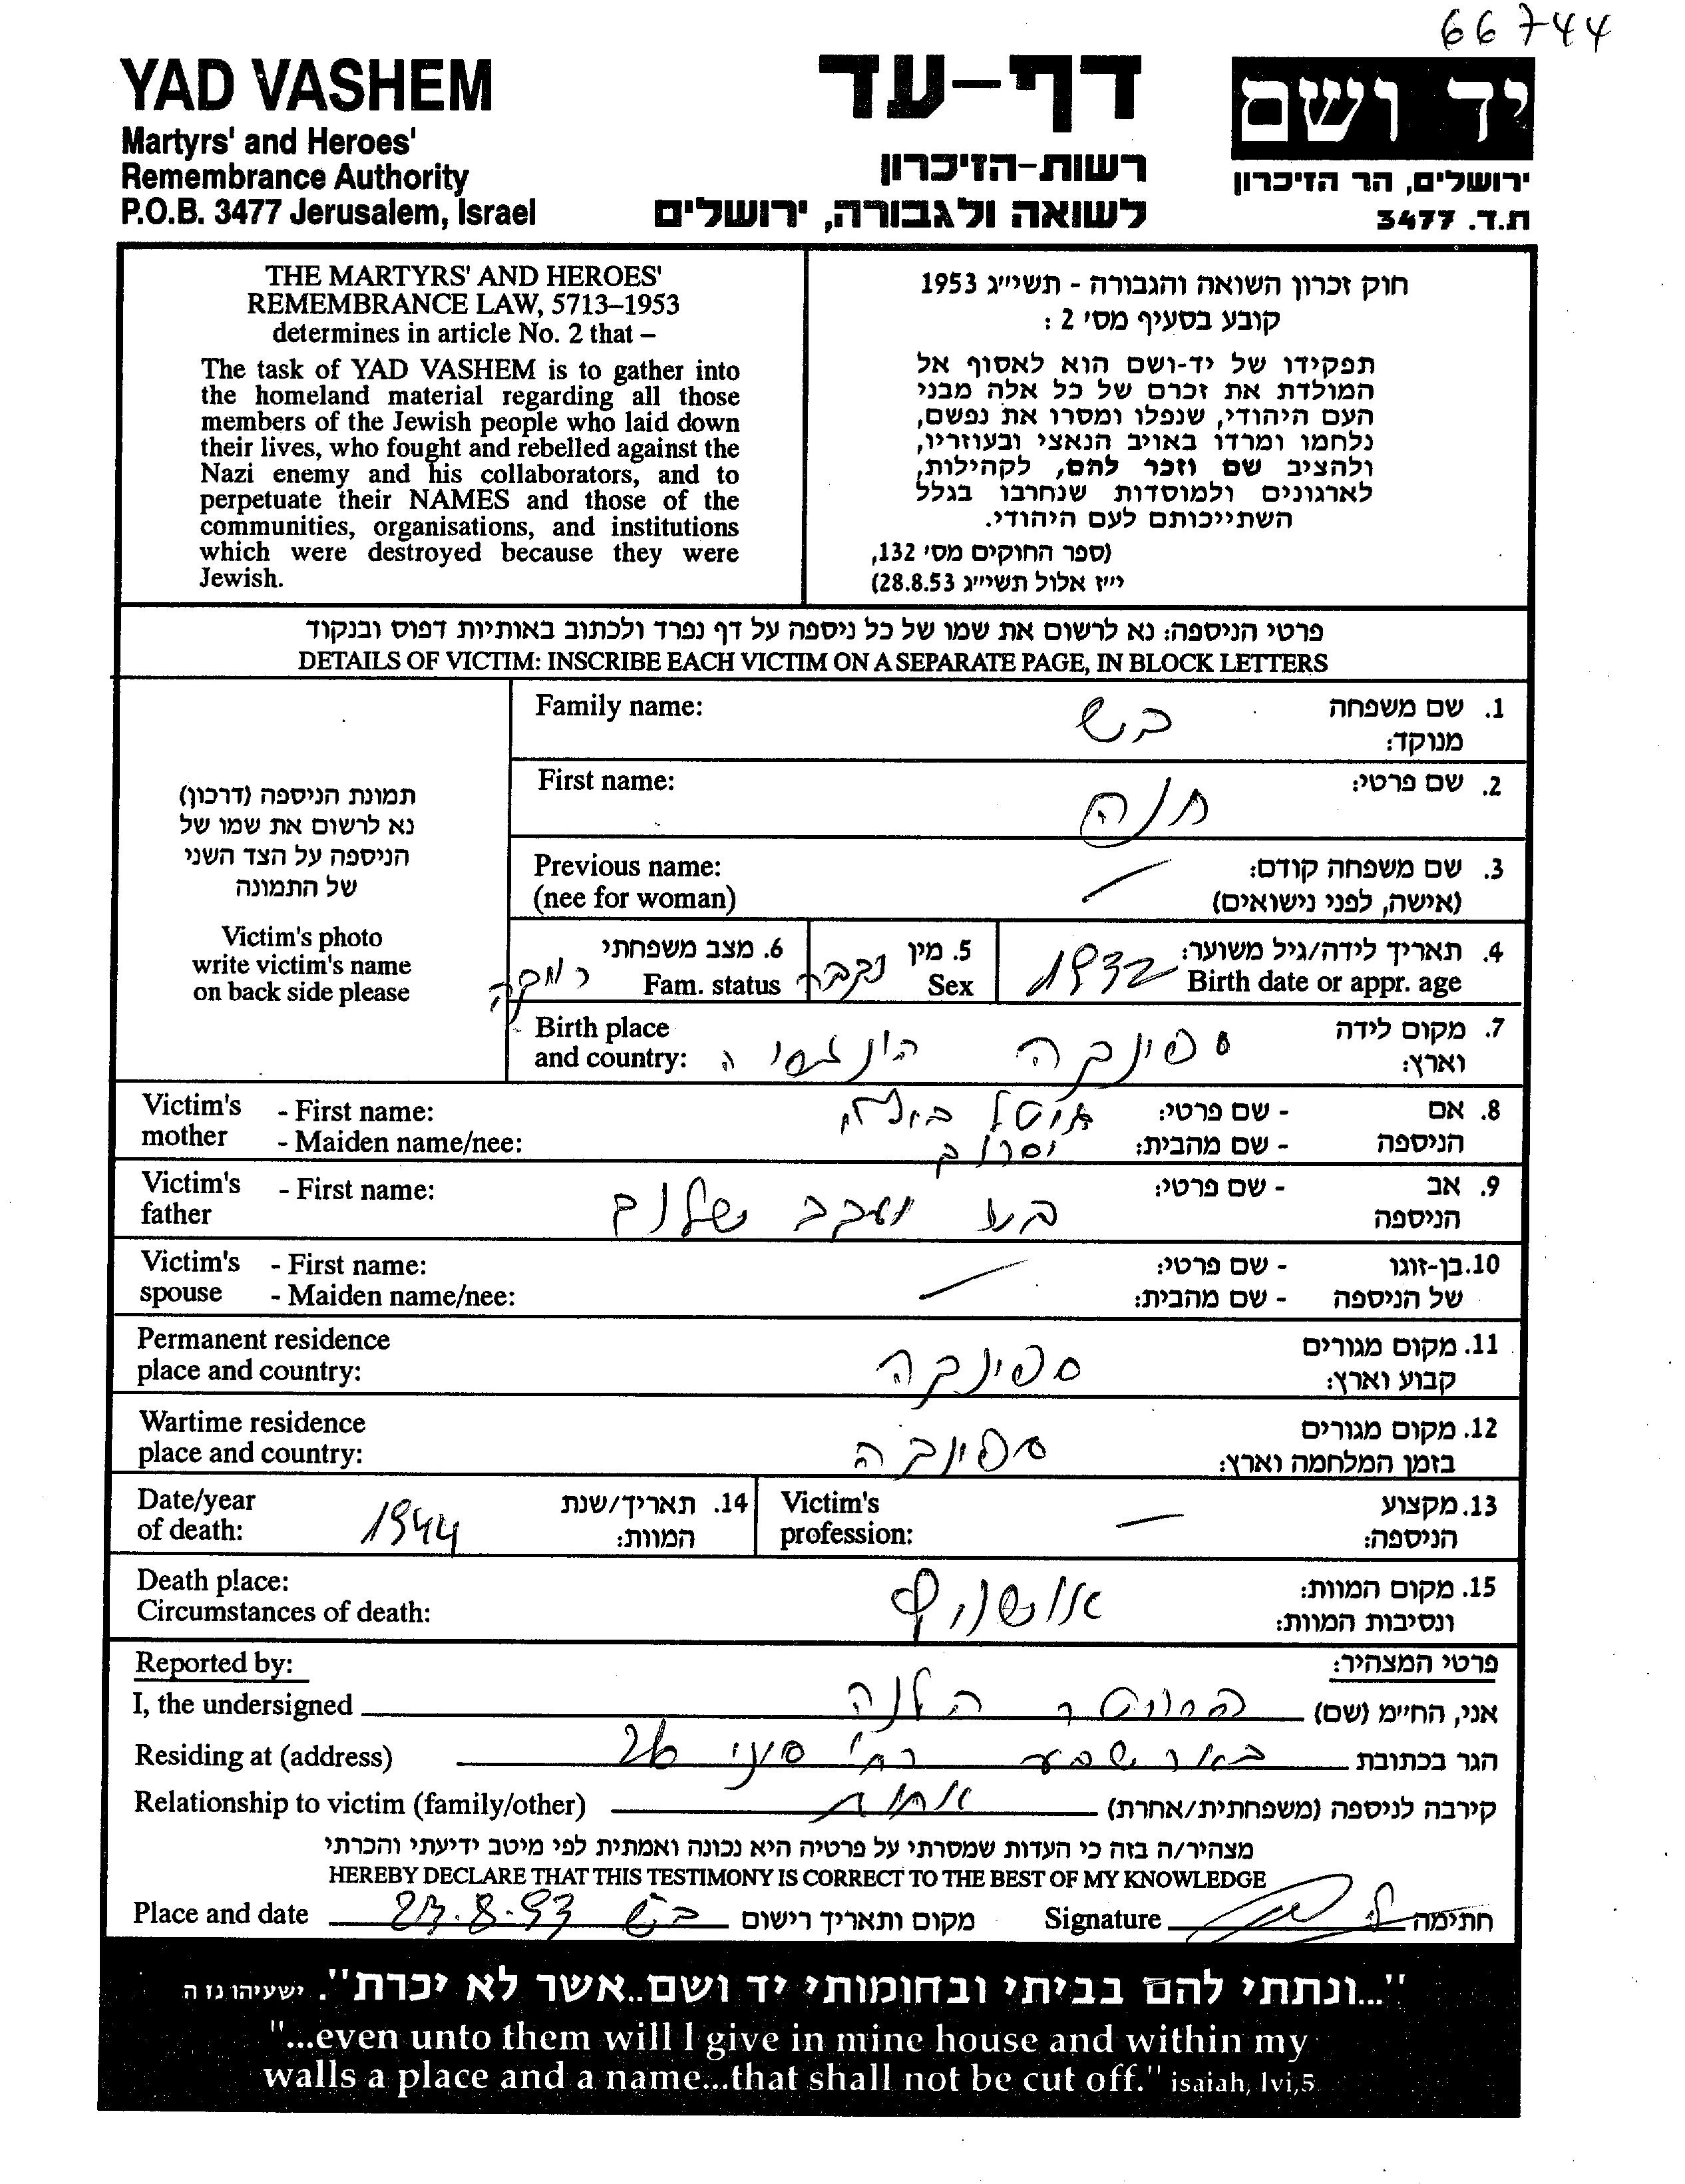 66744
YAD VASHEM
Martyrs' and Heroes'
Remembrance Authority
P.O.B. 3477 Jerusalem, Israel
דף-עד
רשות-הזיכרון
לשואה ולגבורה, ירושלים
יד ושם
ירושלים, הר הזיכרון
ת.ד. 3477
THE MARTYRS' AND HEROES'
REMEMBRANCE LAW, 5713–1953
determines in article No. 2 that –
The task of YAD VASHEM is to gather into
the homeland material regarding all those
members of the Jewish people who laid down
their lives, who fought and rebelled against the
Nazi enemy and his collaborators, and to
perpetuate their NAMES and those of the
communities, organisations, and institutions
which were destroyed because they were
Jewish.
חוק זכרון השואה והגבורה - תשי״ג 1953
קובע בסעיף מס׳ 2 :
תפקידו של יד-ושם הוא לאסוף אל
המולדת את זכרם של כל אלה מבני
העם היהודי, שנפלו ומסרו את נפשם,
נלחמו ומרדו באויב הנאצי ובעוזריו,
ולהציב שם וזכר להם, לקהילות,
לארגונים ולמוסדות שנחרבו בגלל
השתייכותם לעם היהודי.
(ספר החוקים מס׳ 132,
י״ז אלול תשי״ג 28.8.53)
פרטי הניספה: נא לרשום את שמו של כל ניספה על דף נפרד ולכתוב באותיות דפוס ובנקוד
DETAILS OF VICTIM: INSCRIBE EACH VICTIM ON A SEPARATE PAGE, IN BLOCK LETTERS
תמונת הניספה (דרכון)
נא לרשום את שמו של
הניספה על הצד השני
של התמונה
Victim's photo
write victim's name
on back side please
1. שם משפחה
מנוקד:
Family name:
2. שם פרטי: חנה
First name:
3. שם משפחה קודם: —
(אישה, לפני נישואים)
Previous name:
(nee for woman)
4. תאריך לידה/גיל משוער: 1932
Birth date or appr. age
5. מין נקבה
Sex
6. מצב משפחתי רווקה
Fam. status
7. מקום לידה ספינקה
וארץ:
Birth place
and country:
8. אם - שם פרטי:
הניספה - שם מהבית:
Victim's - First name:
mother - Maiden name/nee:
9. אב - שם פרטי: יעקב שלום
הניספה
Victim's - First name:
father
10. בן-זוגו - שם פרטי: —
של הניספה - שם מהבית:
Victim's - First name:
spouse - Maiden name/nee:
11. מקום מגורים ספינקה
קבוע וארץ:
Permanent residence
place and country:
12. מקום מגורים ספינקה
בזמן המלחמה וארץ:
Wartime residence
place and country:
13. מקצוע —
הניספה:
Victim's
profession:
14. תאריך/שנת 1944
המוות:
Date/year
of death:
15. מקום המוות: אושויץ
ונסיבות המוות:
Death place:
Circumstances of death:
פרטי המצהיר:
Reported by:
אני, החי״מ (שם) הלנה
I, the undersigned
הגר בכתובת באר שבע רח׳ סיני 26
Residing at (address)
קירבה לניספה (משפחתית/אחרת) אחות
Relationship to victim (family/other)
מצהיר/ה בזה כי העדות שמסרתי על פרטיה היא נכונה ואמתית לפי מיטב ידיעתי והכרתי
HEREBY DECLARE THAT THIS TESTIMONY IS CORRECT TO THE BEST OF MY KNOWLEDGE
Place and date 23.8.93 ב״ש מקום ותאריך רישום Signature חתימה
"...ונתתי להם בביתי ובחומותי יד ושם..אשר לא יכרת". ישעיהו נז ה
"...even unto them will I give in mine house and within my
walls a place and a name...that shall not be cut off." isaiah, lvi,5